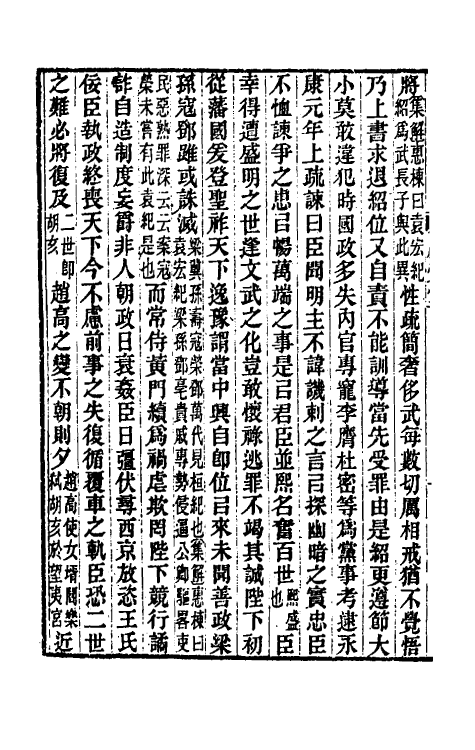 將集解惠棟曰袁宏紀紹爲武長子與此異性疏簡奢侈武每數切厲相戒猶不覺悟
乃上書求退紹位又自責不能訓導當先受罪由是紹更遵節大
小莫敢違犯時國政多失內官專寵李膺杜密等爲黨事考逮永
康元年上疏諫曰臣聞明主不諱譏刺之言㠯探幽暗之實忠臣
不恤諫爭之患㠯暢萬端之事是㠯君臣並熙名奮百世熙盛也臣
幸得遭盛明之世逢文武之化豈敢懷祿逃罪不竭其誠陛下初
從藩國爰登聖祚天下逸豫謂當中興自卽位㠯來未聞善政梁
孫寇鄧雖或誅滅梁冀孫壽寇榮鄧萬代見桓紀也集解惠棟曰袁宏紀梁孫鄧亳貴戚專勢侵逼公卿驅畧吏
民惡熟罪深云云案寇榮未嘗有此袁紀是也而常侍黃門續爲禍虐欺罔陛下競行譎
詐自造制度妄爵非人朝政日衰姦臣日彊伏尋西京放恣王氏
佞臣執政終喪天下今不慮前事之失復循覆車之軌臣恐二世
之難必將復及二世卽胡亥趙高之變不朝則夕趙高使女壻閻樂弑胡亥於望夷宮近